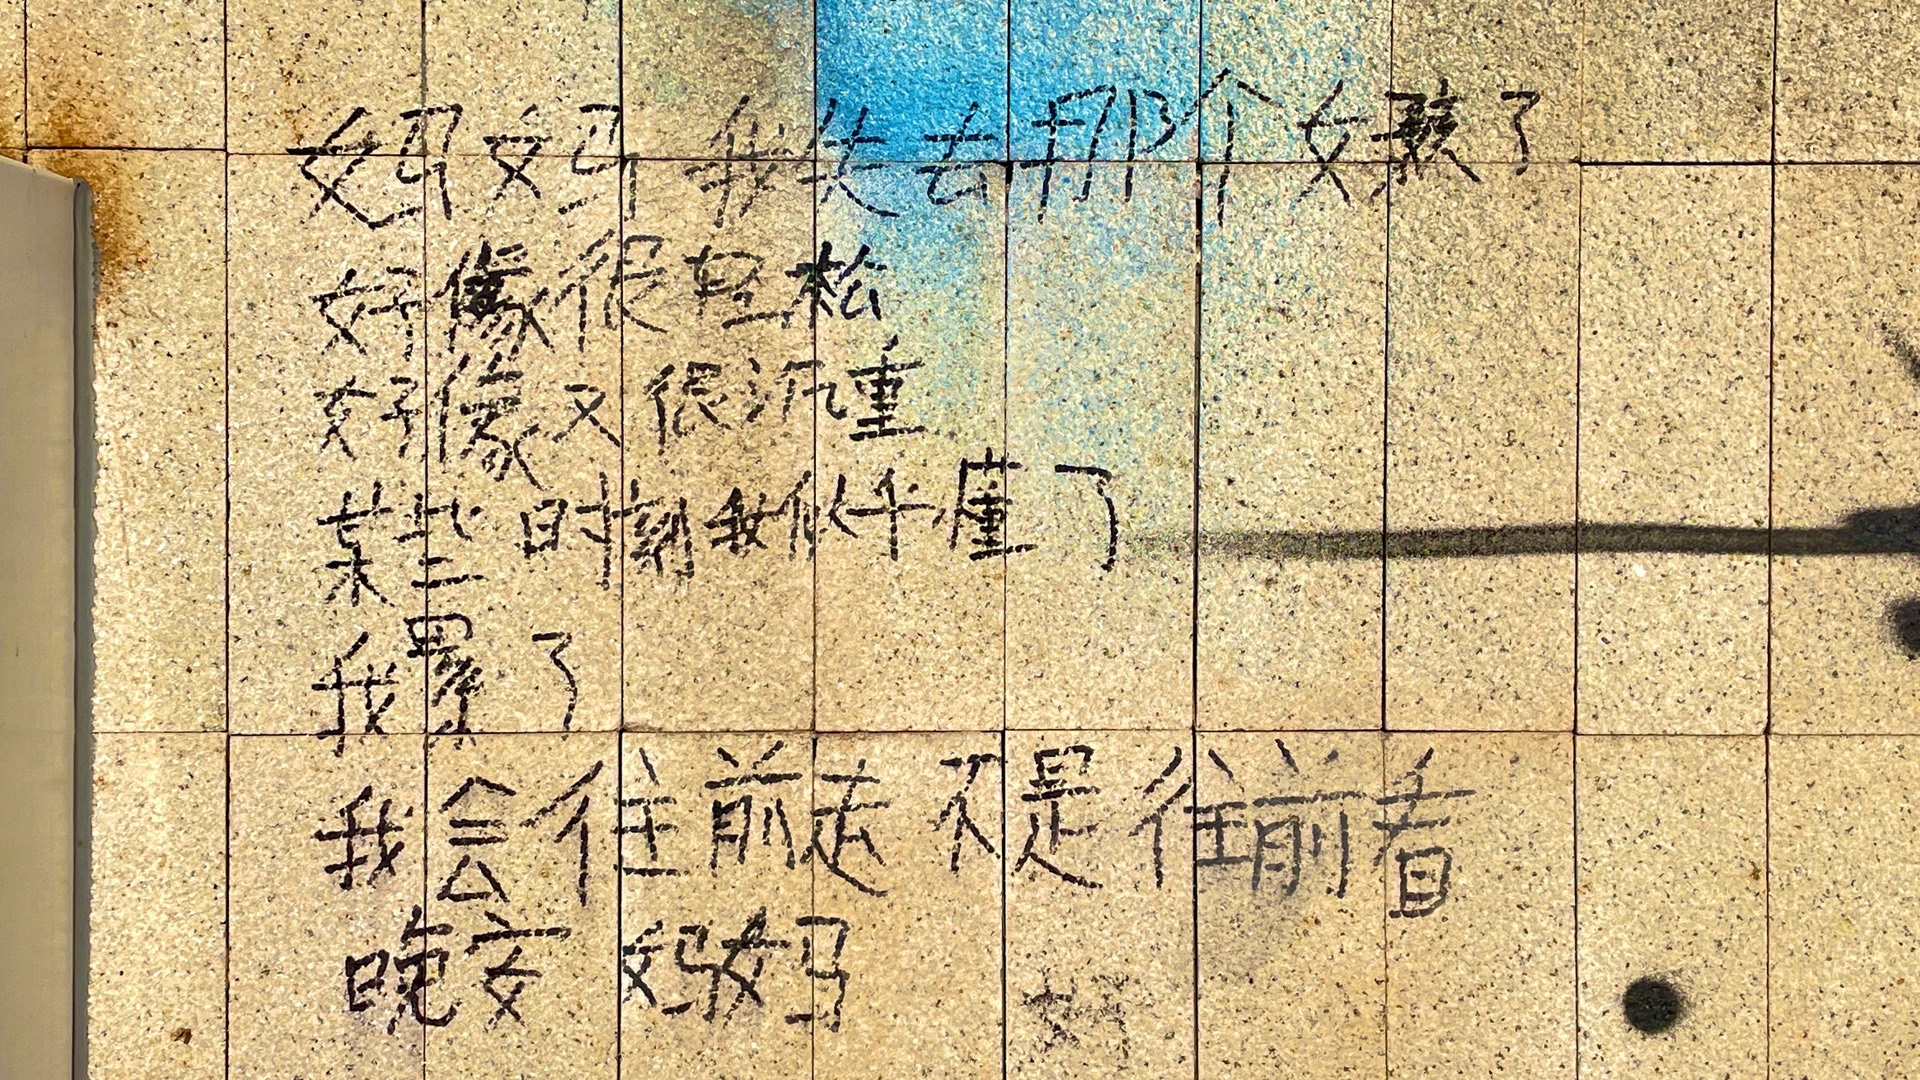 妈妈 我失去那个女孩了
好像很轻松
好像又很沉重
某些时刻我似乎懂了
我累了
我会往前走 不是往前看
晚安 妈妈